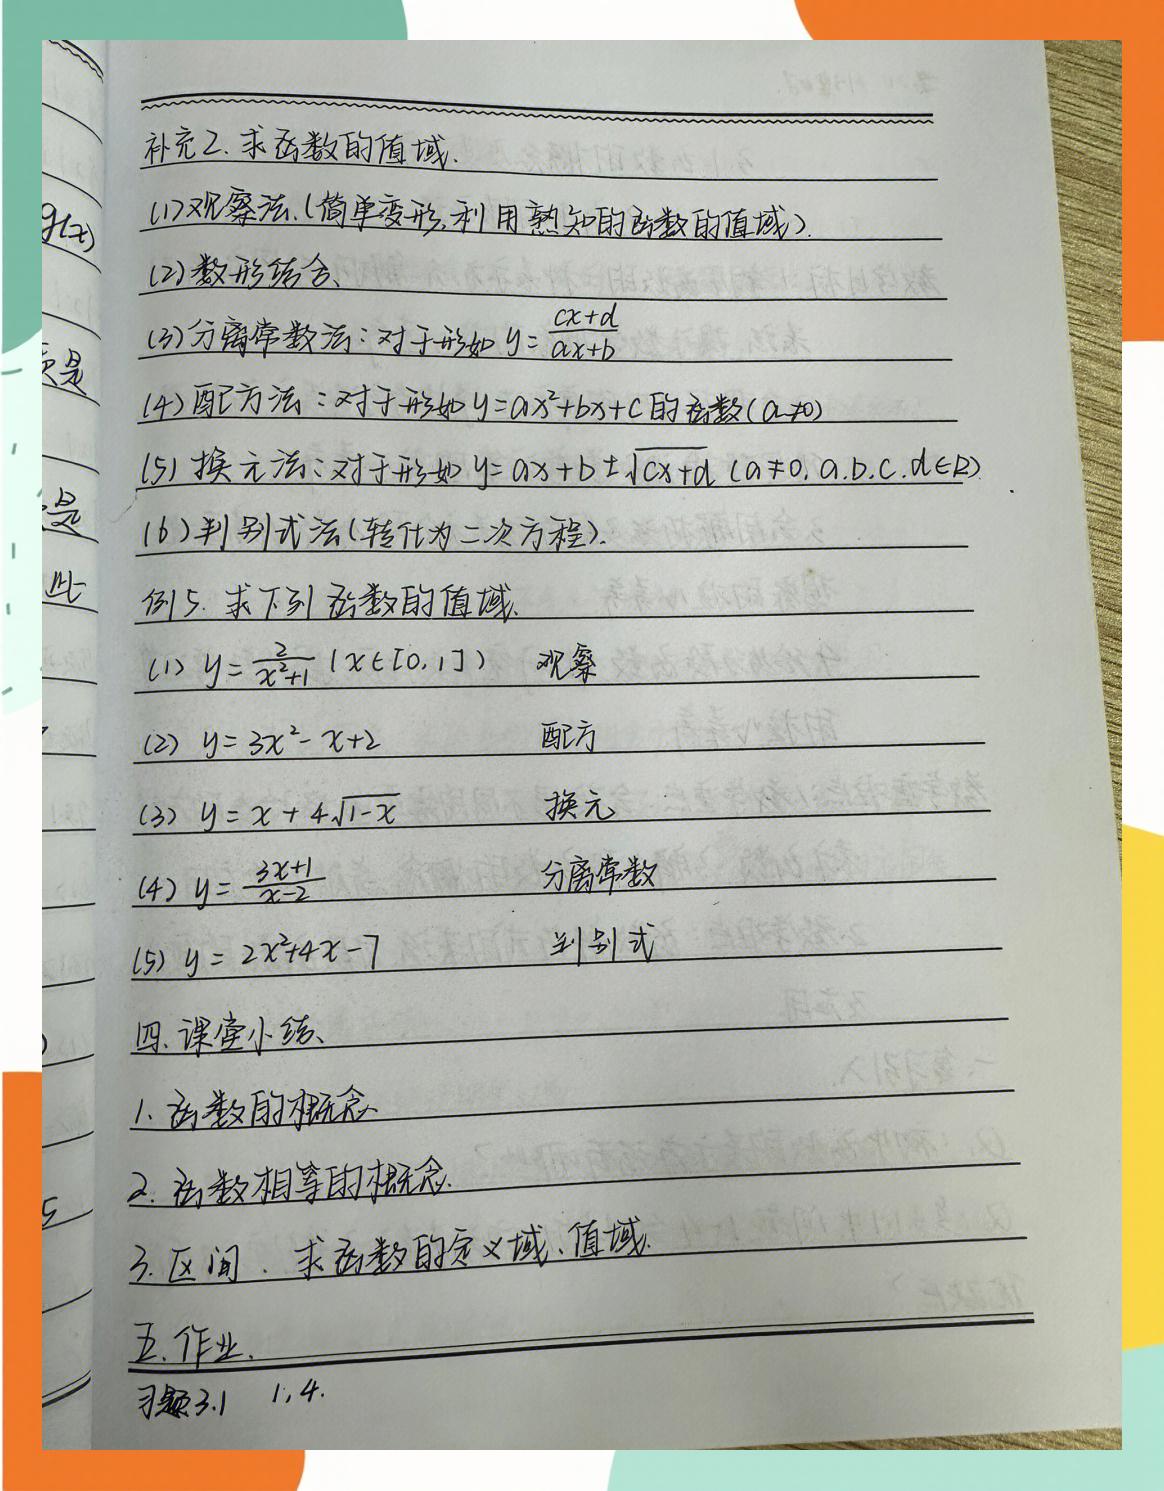 补充2. 求函数的值域.
(1)观察法.(简单变形,利用熟知的函数的值域).
(2)数形结合、
(3)分离常数法：对于形如 y=\frac{cx+d}{ax+b}
(4)配方法：对于形如 y=ax²+bx+c 的函数(a≠0)
(5)换元法：对于形如 y=ax+b±√(cx+d) (a≠0, a.b.c.d∈R)
(6)判别式法(转化为二次方程).
例5. 求下列函数的值域.
(1) y=\frac{2}{x²+1} (x∈[0,1]) 观察
(2) y=3x²-x+2 配方
(3) y=x+4√(1-x) 换元
(4) y=\frac{3x+1}{x-2} 分离常数
(5) y=2x²+4x-7 判别式
四.课堂小结、
1. 函数的概念
2. 函数相等的概念.
3. 区间. 求函数的定义域、值域.
五.作业.
习题3.1 1,4.
g(x)
是
是
此